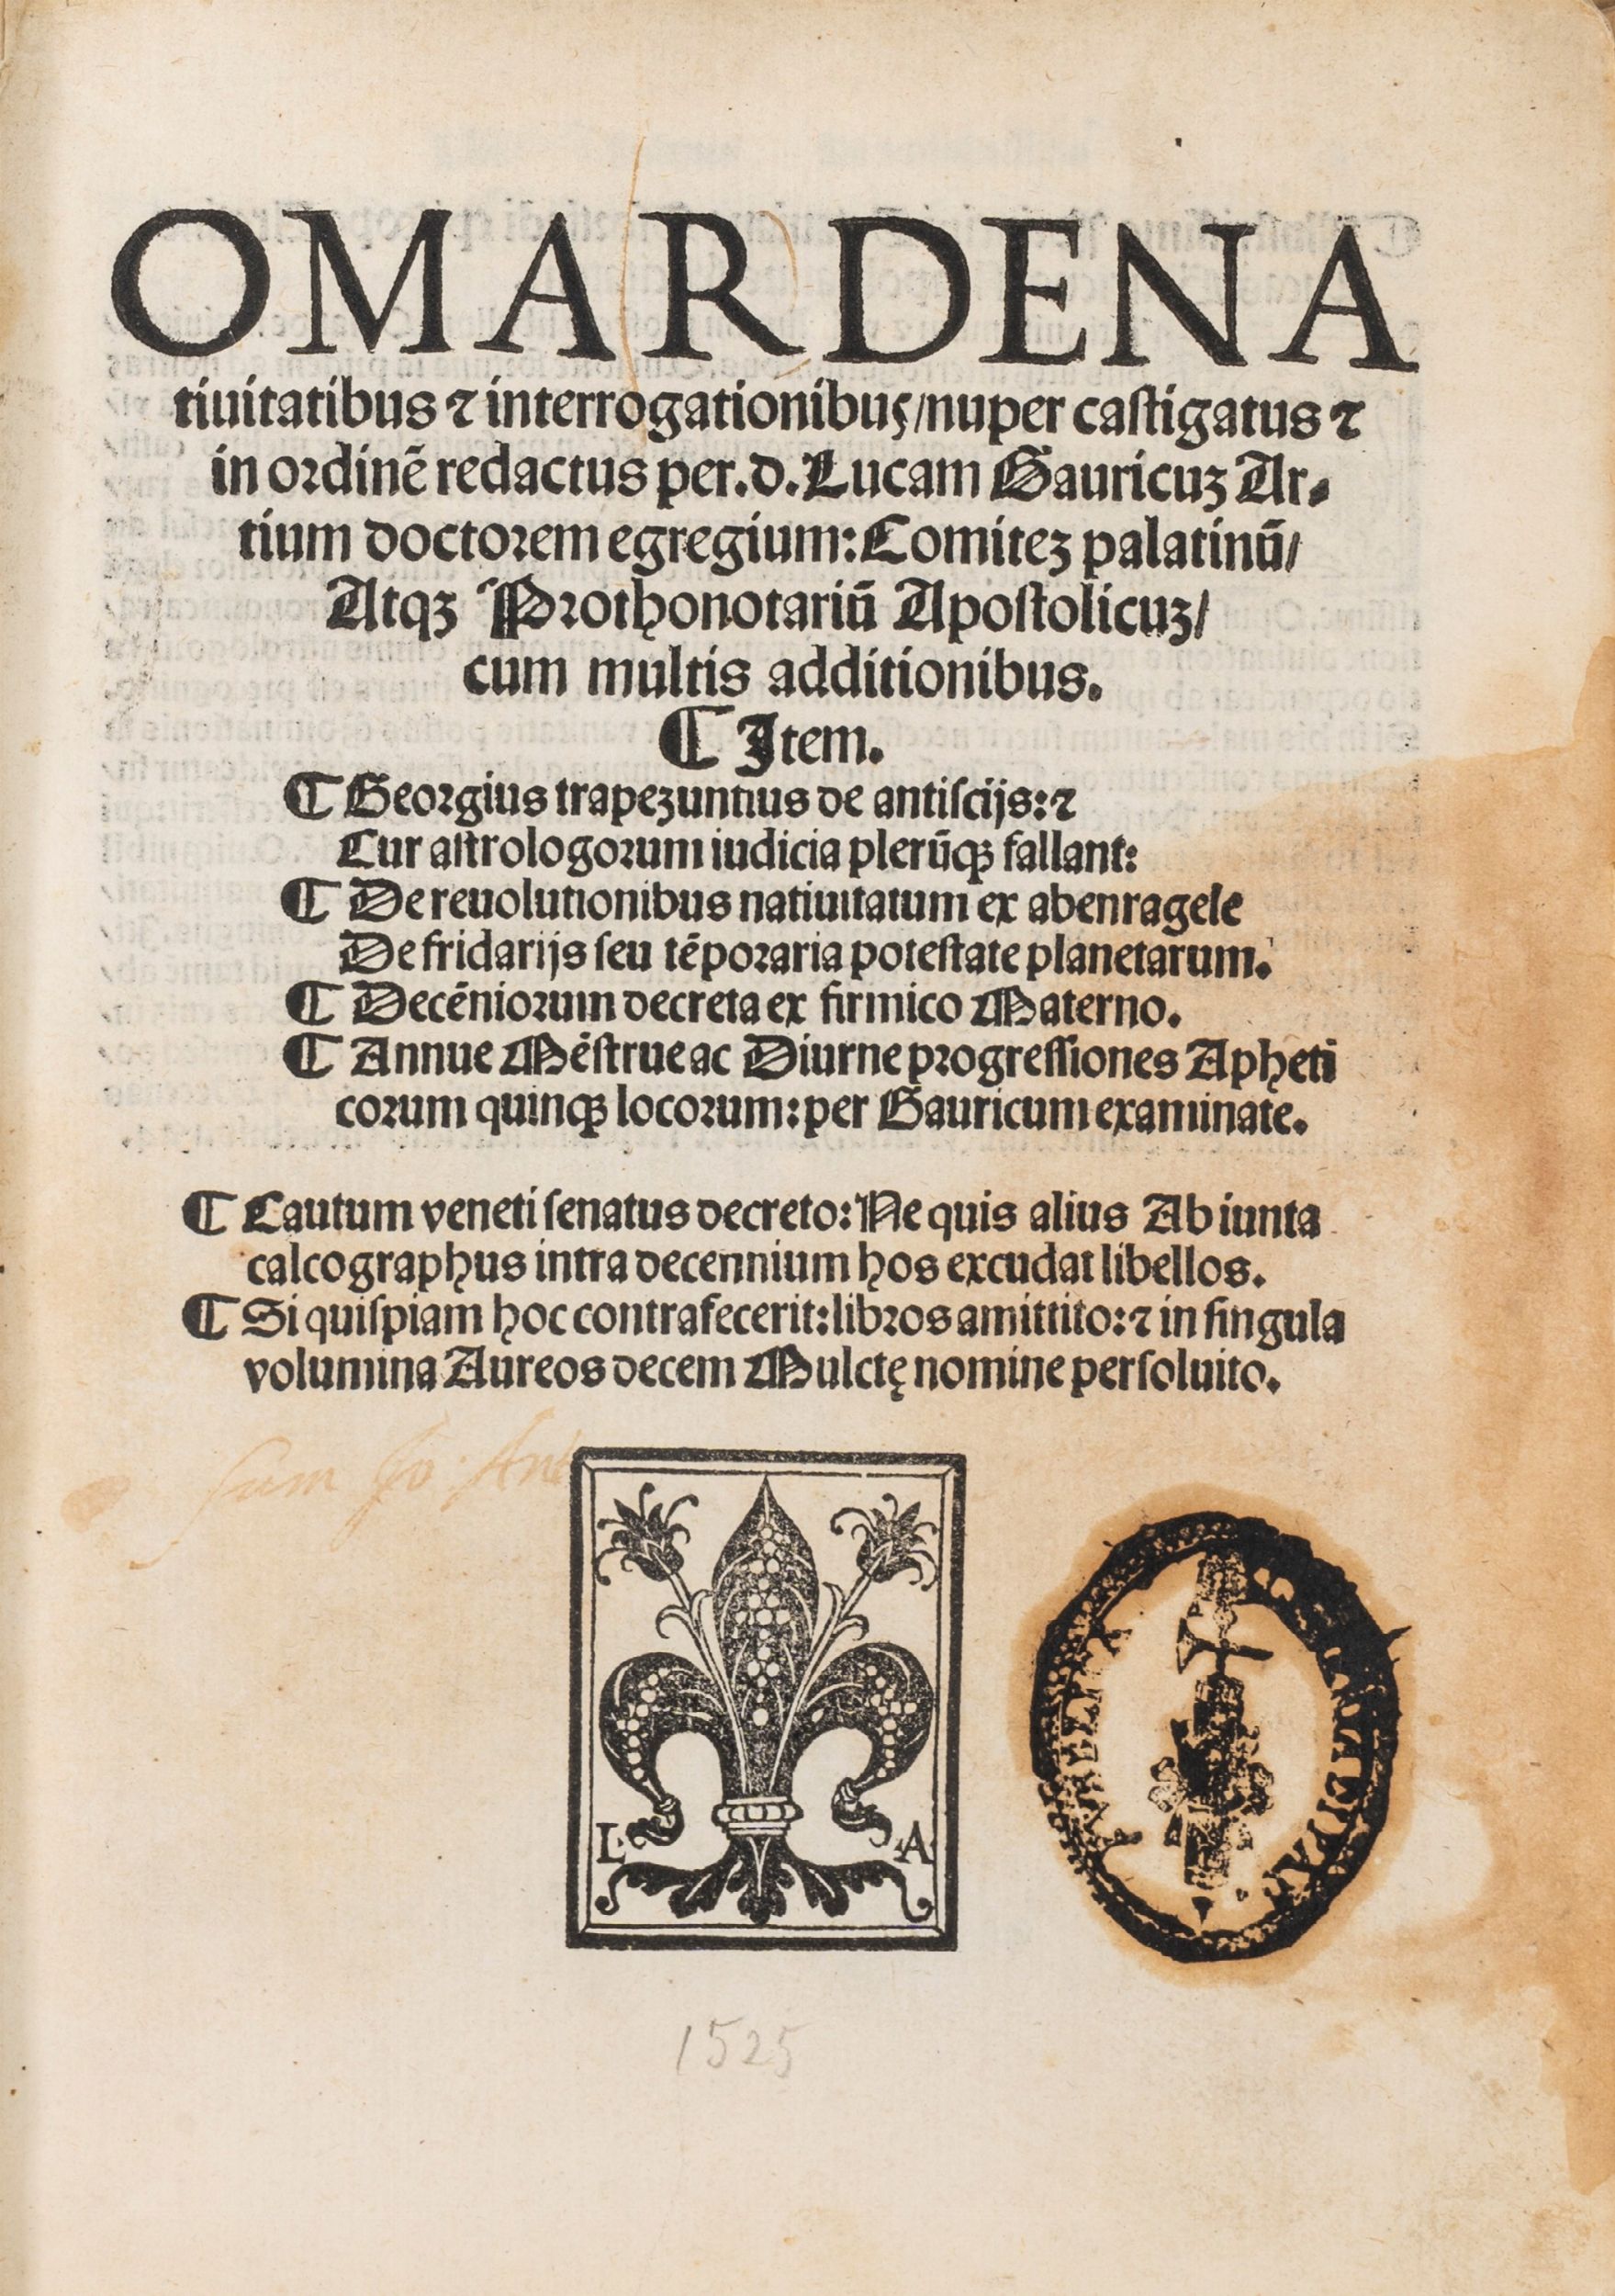 OMAR DE NA
tiuitatibus ⁊ interrogationibuꝫ/nuper caſtigatus ⁊
in ordinē redactus per.d.Lucam Gauricuꝫ Ar⸗
tium doctorem egregium:Comiteꝫ palatinū/
Atqꝫ Prothonotariū Apoſtolicuꝫ/
cum multis additionibus.
¶ Item.
¶ Georgius trapezuntius de antiſcijs:⁊
Cur aſtrologorum iudicia plerūqꝫ fallant:
¶ De reuolutionibus natiuitatum ex abenragele
De fridarijs ſeu tēporaria poteſtate planetarum.
¶ Decēniorum decreta ex firmico Materno.
¶ Annue Mēſtrue ac Diurne progreſſiones Apheti
corum quinqꝫ locorum:per Gauricum examinate.
¶ Cautum veneti ſenatus decreto:Ne quis alius Ab iunta
calcographus intra decennium hos excudat libellos.
¶ Si quiſpiam hoc contrafecerit:libros amittito:⁊ in ſingula
volumina Aureos decem Mulctę nomine perſoluito.
Sum Jo. Ant
L. .A
1525